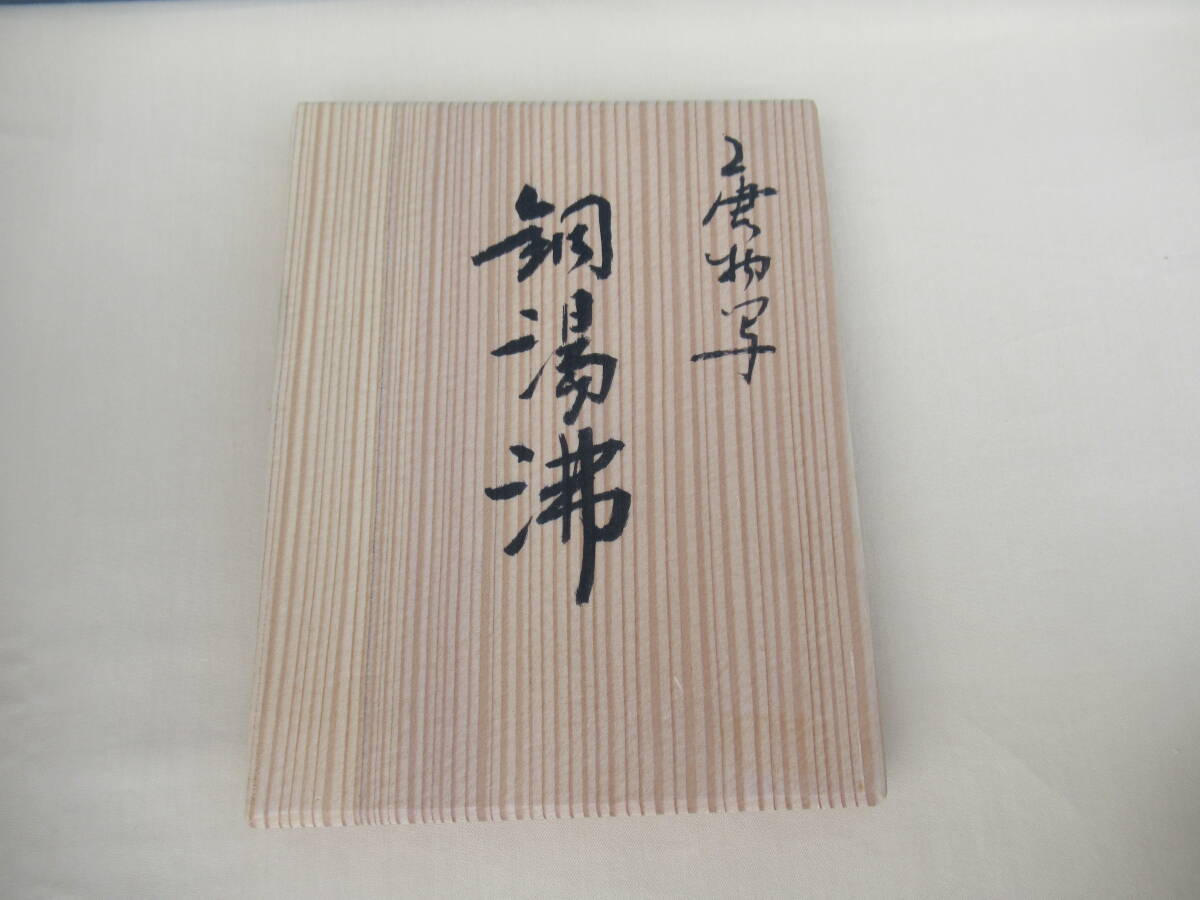 唐物写
銅湯沸